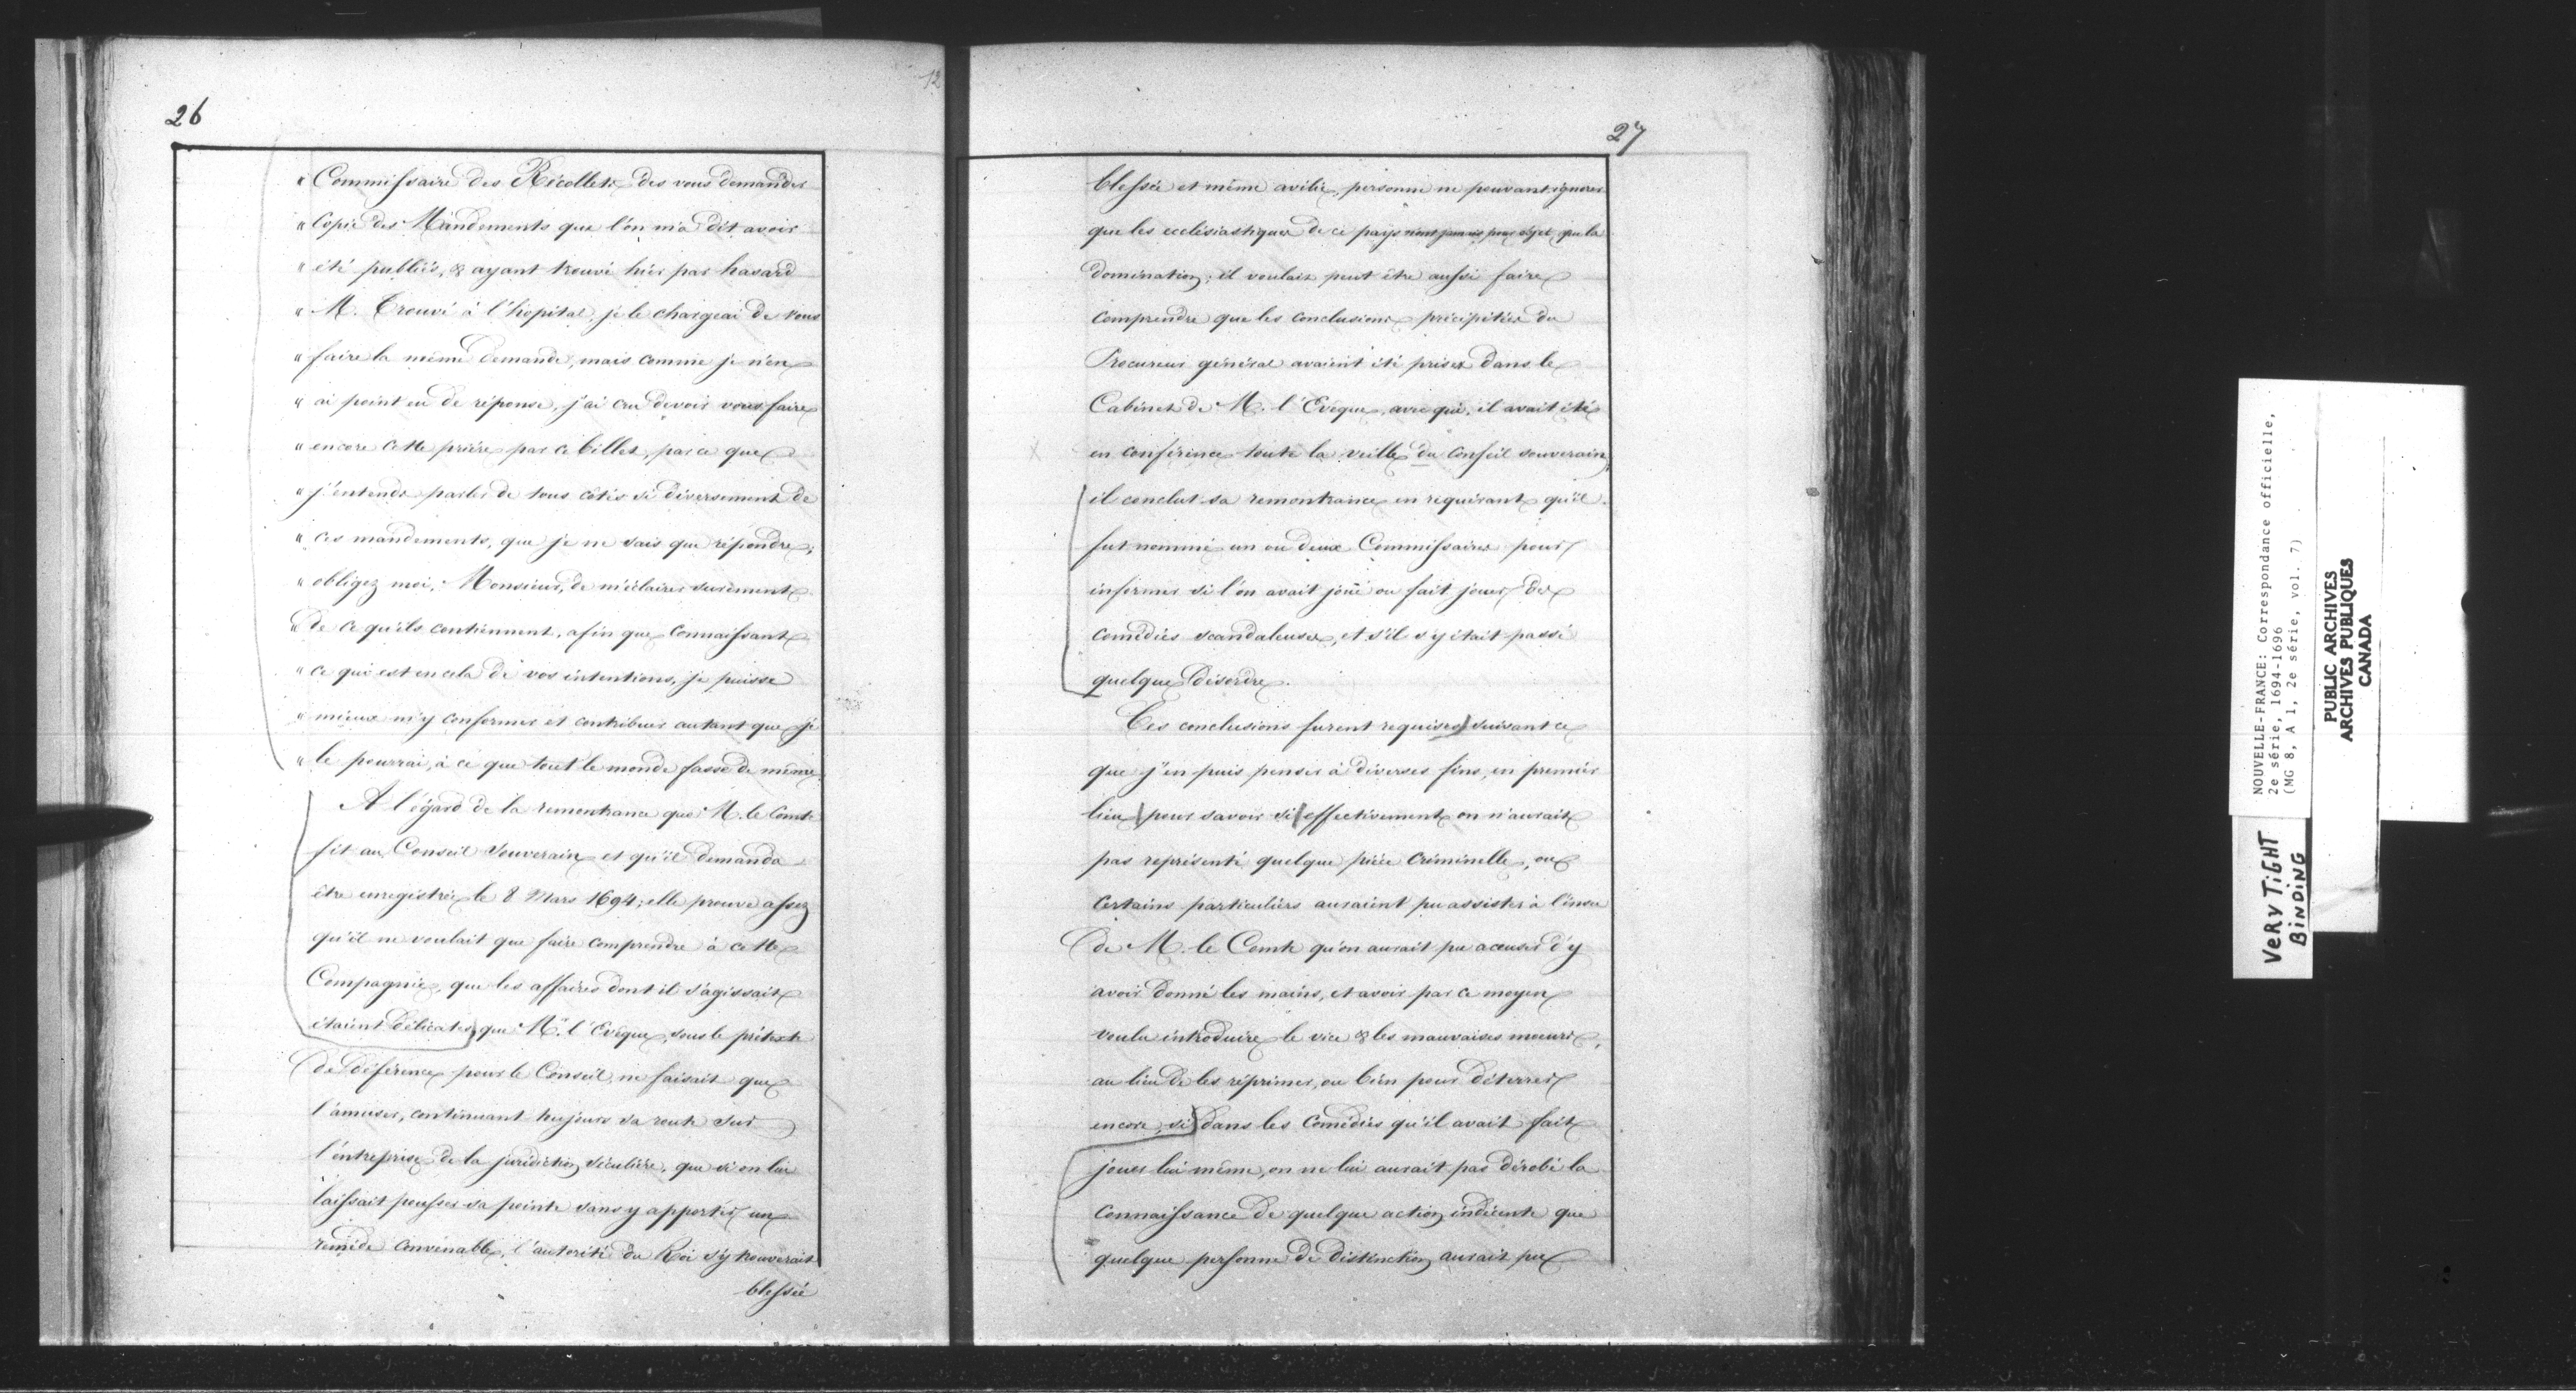 26
12
" Commissaire des Récollets des vous demander
" Copie des Mandements que l'on m'a dit avoir
" été publiés, & ayant trouvé hier par hasard
" M. Trouvé à l'hopital, je le chargeai de vous
" faire la même demande, mais comme je n'en
" ai point eu de réponse, j'ai cru devoir vous faire
" encore cette prière par ce billet, par ce que
" j'entends parler de tous côtés si diversement de
" ces mandements, que je ne sais que répondre;
" obligez moi, Monsieur, de m'éclairer surement
" de ce qu'ils contiennent, afin que connaissant
" ce qui est en cela de vos intentions, je puisse
" mieux m'y conformer et contribuer autant que je
" le pourrai, à ce que tout le monde fasse de même.
A l'égard de la remontrance que M. le Comte
fit au Conseil Souverain et qu'il demanda
être enregistrée le 8 Mars 1694; elle prouve assez
qu'il ne voulait que faire comprendre à cette
Compagnie, que les affaires dont il s'agissait
étaient délicates, que Mr. l'Evêque, sous le prétexte
de déférence pour le Conseil, ne faisait que
l'amuser, continuant toujours sa route sur
l'entreprise de la juridiction séculière, que si on lui
laissait pousser sa pointe sans y apporter un
remède convenable, l'autorité du Roi s'y trouverait
blessée
27
blessée et même avilie, personne ne pouvant ignorer
que les ecclésiastiques de ce pays n'ont jamais pour objet que la
domination; il voulait peut être aussi faire
comprendre que les conclusions précipitées du
Procureur général avaient été prises dans le
Cabinet de M. l'Evêque, avec qui il avait été
en conférence toute la veille du Conseil souverain;
il conclut sa remontrance en requérant qu'il
fut nommé un ou deux Commissaires pour
informer si l'on avait joué ou fait jouer des
comédies scandaleuses, et s'il s'y était passé
quelque désordre.
Ces conclusions furent requises suivant ce
que j'en puis penser à diverses fins, en premier
lieu pour savoir si effectivement on n'aurait
pas représenté quelque pièce criminelle, ou
certains particuliers auraient pu assister à l'insu
de M. le Comte qu'on aurait pu accuser d'y
avoir donné les mains, et avoir par ce moyen
voulu introduire le vice & les mauvaises moeurs,
au lieu de les réprimer, ou bien pour déterrer
encore, si dans les Comédies qu'il avait fait
jouer lui même, on ne lui aurait pas dérobé la
connaissance de quelque action indécente que
quelque personne de distinction aurait pu
NOUVELLE-FRANCE: Correspondance officielle,
2e série, 1694-1696
(MG 8, A 1, 2e série, vol. 7)
PUBLIC ARCHIVES
ARCHIVES PUBLIQUES
CANADA
VERY TiGHT
BiNDiNG